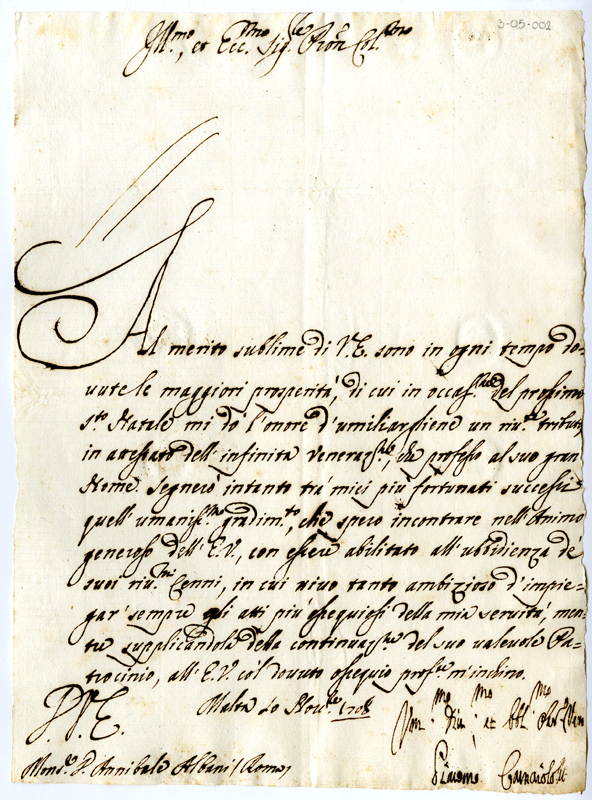 3-05-002
Ill.mo, et Ecc.mo Sig.re Pron Col.mo
Al merito sublime di V.E. sono in ogni tempo do-
uute le maggiori prosperità, di cui in occas.ne del prossimo
S.to Natale mi dò l'onore d'umiliargliene un riu.te tributo
in attestato dell'infinita veneraz.ne, che professo al suo gran
Nome. Segnerò intanto trà miei più fortunati successi
quell'umaniss.mo gradim.to, che spero incontrare nell'Animo
generoso dell'E.V., con essere abilitato all'ubbidienza de'
suoi riu.ti Cenni, in cui uiuo tanto ambizioso d'impie-
gar sempre gli atti più ossequiosi della mia seruitù, men-
tre supplicandola della continuaz.ne del suo ualeuole Pa-
trocinio, all'E.V. col douuto ossequio prof.te m'inchino.
Malta 10 Nou.bre 1708
P.V.E.
Um.mo Diu.mo et Obl.mo
Mons.r D. Annibale Albani / Roma /
Giacomo